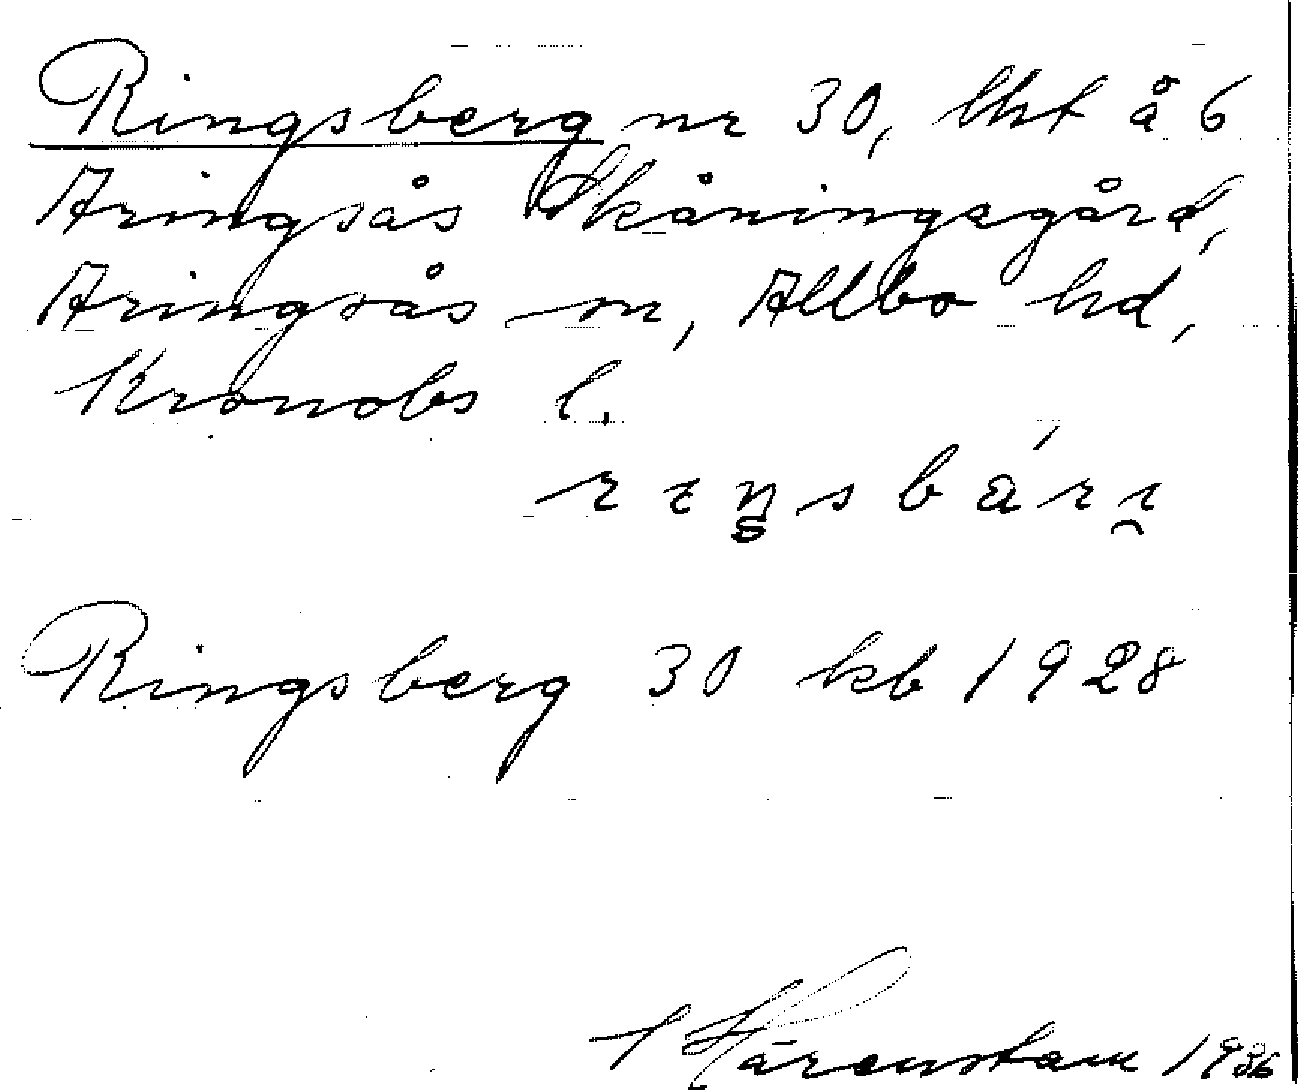 Ringsberg nr 30, lht å 6
Aringsås Skåningsgård,
Aringsås sn, Allbo hd,
Kronobs l.
r ɪ n̥ s b á r ɪ̯
Ringsberg 30 kb 1928
Härenstam 1936